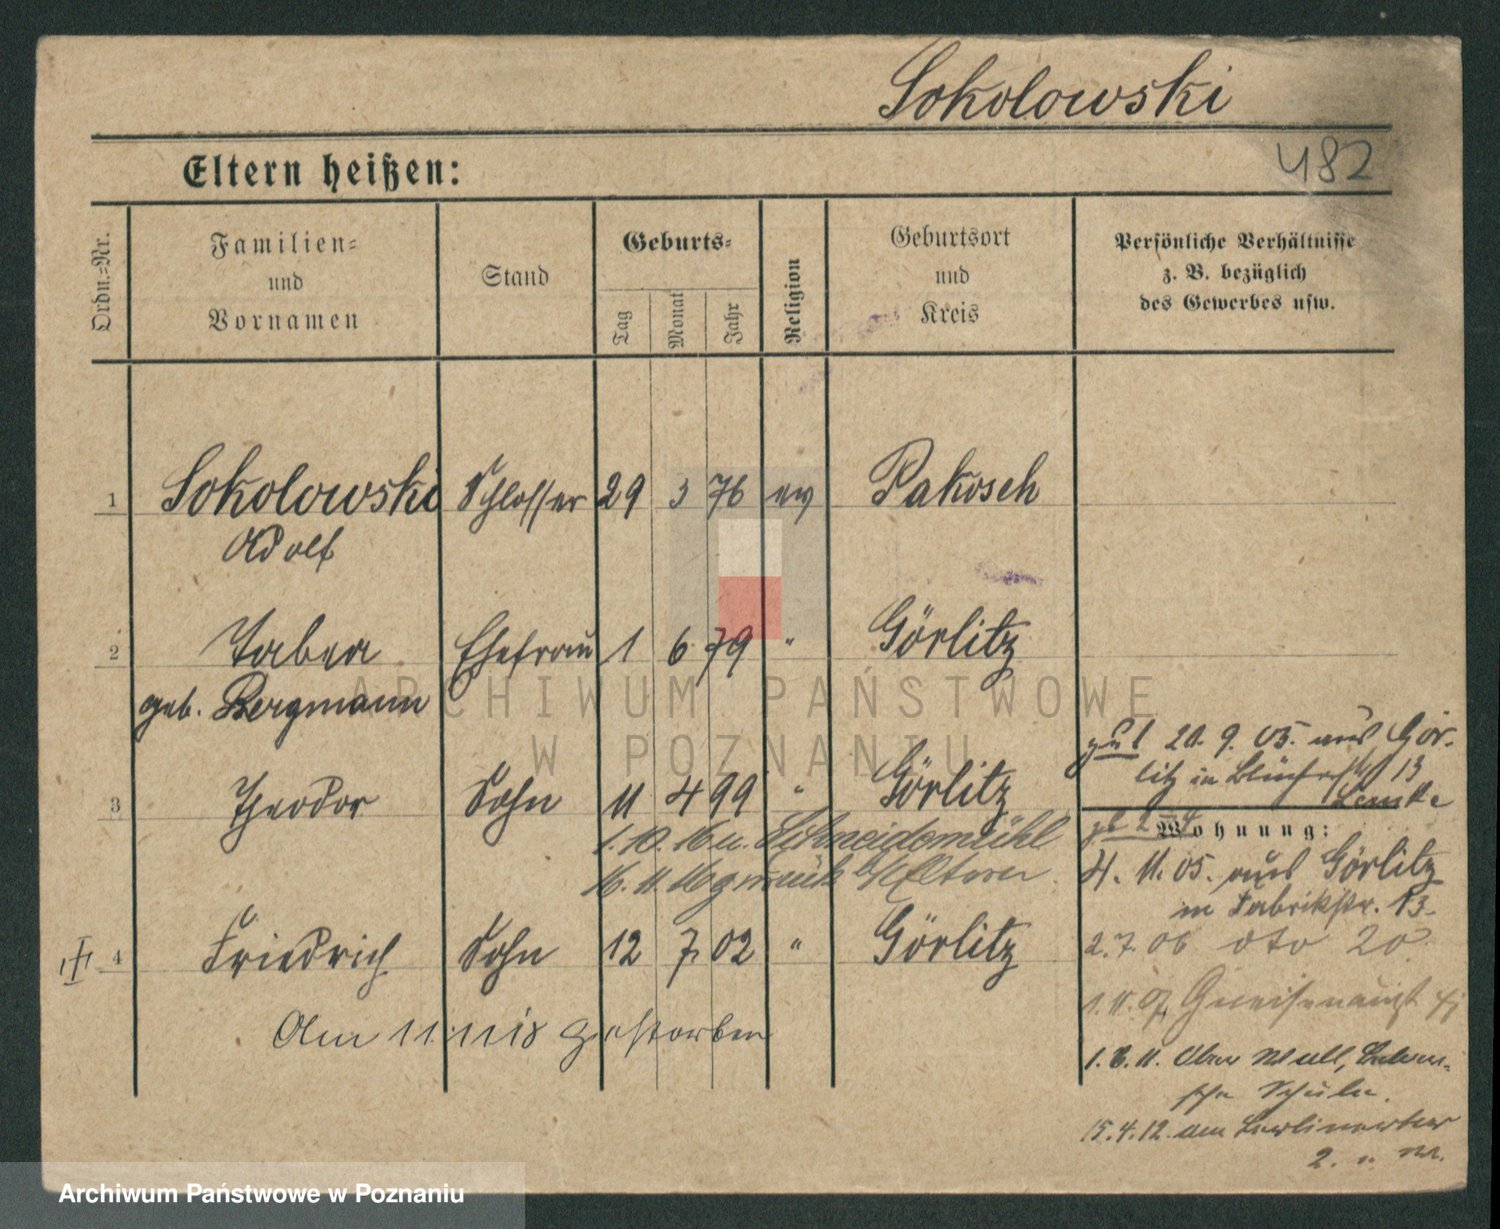 Sokolowski
482
Eltern heißen:
Ordn.-Nr.
Familien-
und
Vornamen
Stand
Geburts-
Tag
Monat
Jahr
Religion
Geburtsort
und
Kreis
Persönliche Verhältnisse
z. B. bezüglich
des Gewerbes usw.
1 Sokolowski Schlosser 29 3 76 ev Pakosch
Adolf
2 Tabea Ehefrau 1 6 79 " Görlitz
geb. Bergmann
ARCHIWUM PAŃSTWOWE
W POZNANIU
zu 1 20. 9. 05. aus Gör-
litz in 13
3 Theodor Sohn 11 4 99 " Görlitz
Lemke
1. 10. 16 n. Schneidemühl
16. 11. 16 zurück Eltern
Wohnung:
4. 11. 05. aus Görlitz
in Fabrikstr. 13.
4 Friedrich Sohn 12 7 02 " Görlitz
2. 7. 06 dto 20
1. 11. 07
Am 11. 11 18 gestorben
1. 8. 11.
Schule.
15. 4. 12. am Berlinertor
2.
Archiwum Państwowe w Poznaniu